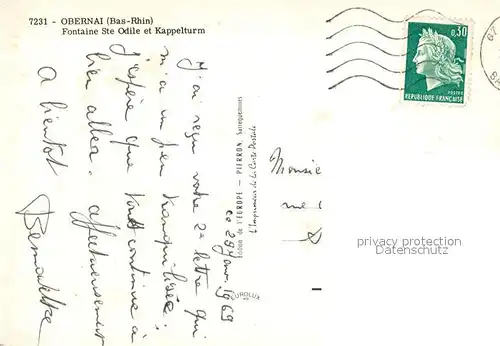 7231 - OBERNAI (Bas-Rhin)
Fontaine Ste Odile et Kappelturm
0,30
POSTES
REPUBLIQUE FRANÇAISE
67
ce 28 Janv 1969
J'ai reçu votre 2e lettre qui
m'a un peu tranquilisée.
J'espère que tout continue à
bien aller. affectueusement
A bientôt
Bernadette
de l'EUROPE - PIERRON, Sarreguemines
L'Imprimeur de la Carte Postale
EUROLUX
Monsie
rue
privacy protection
Datenschutz